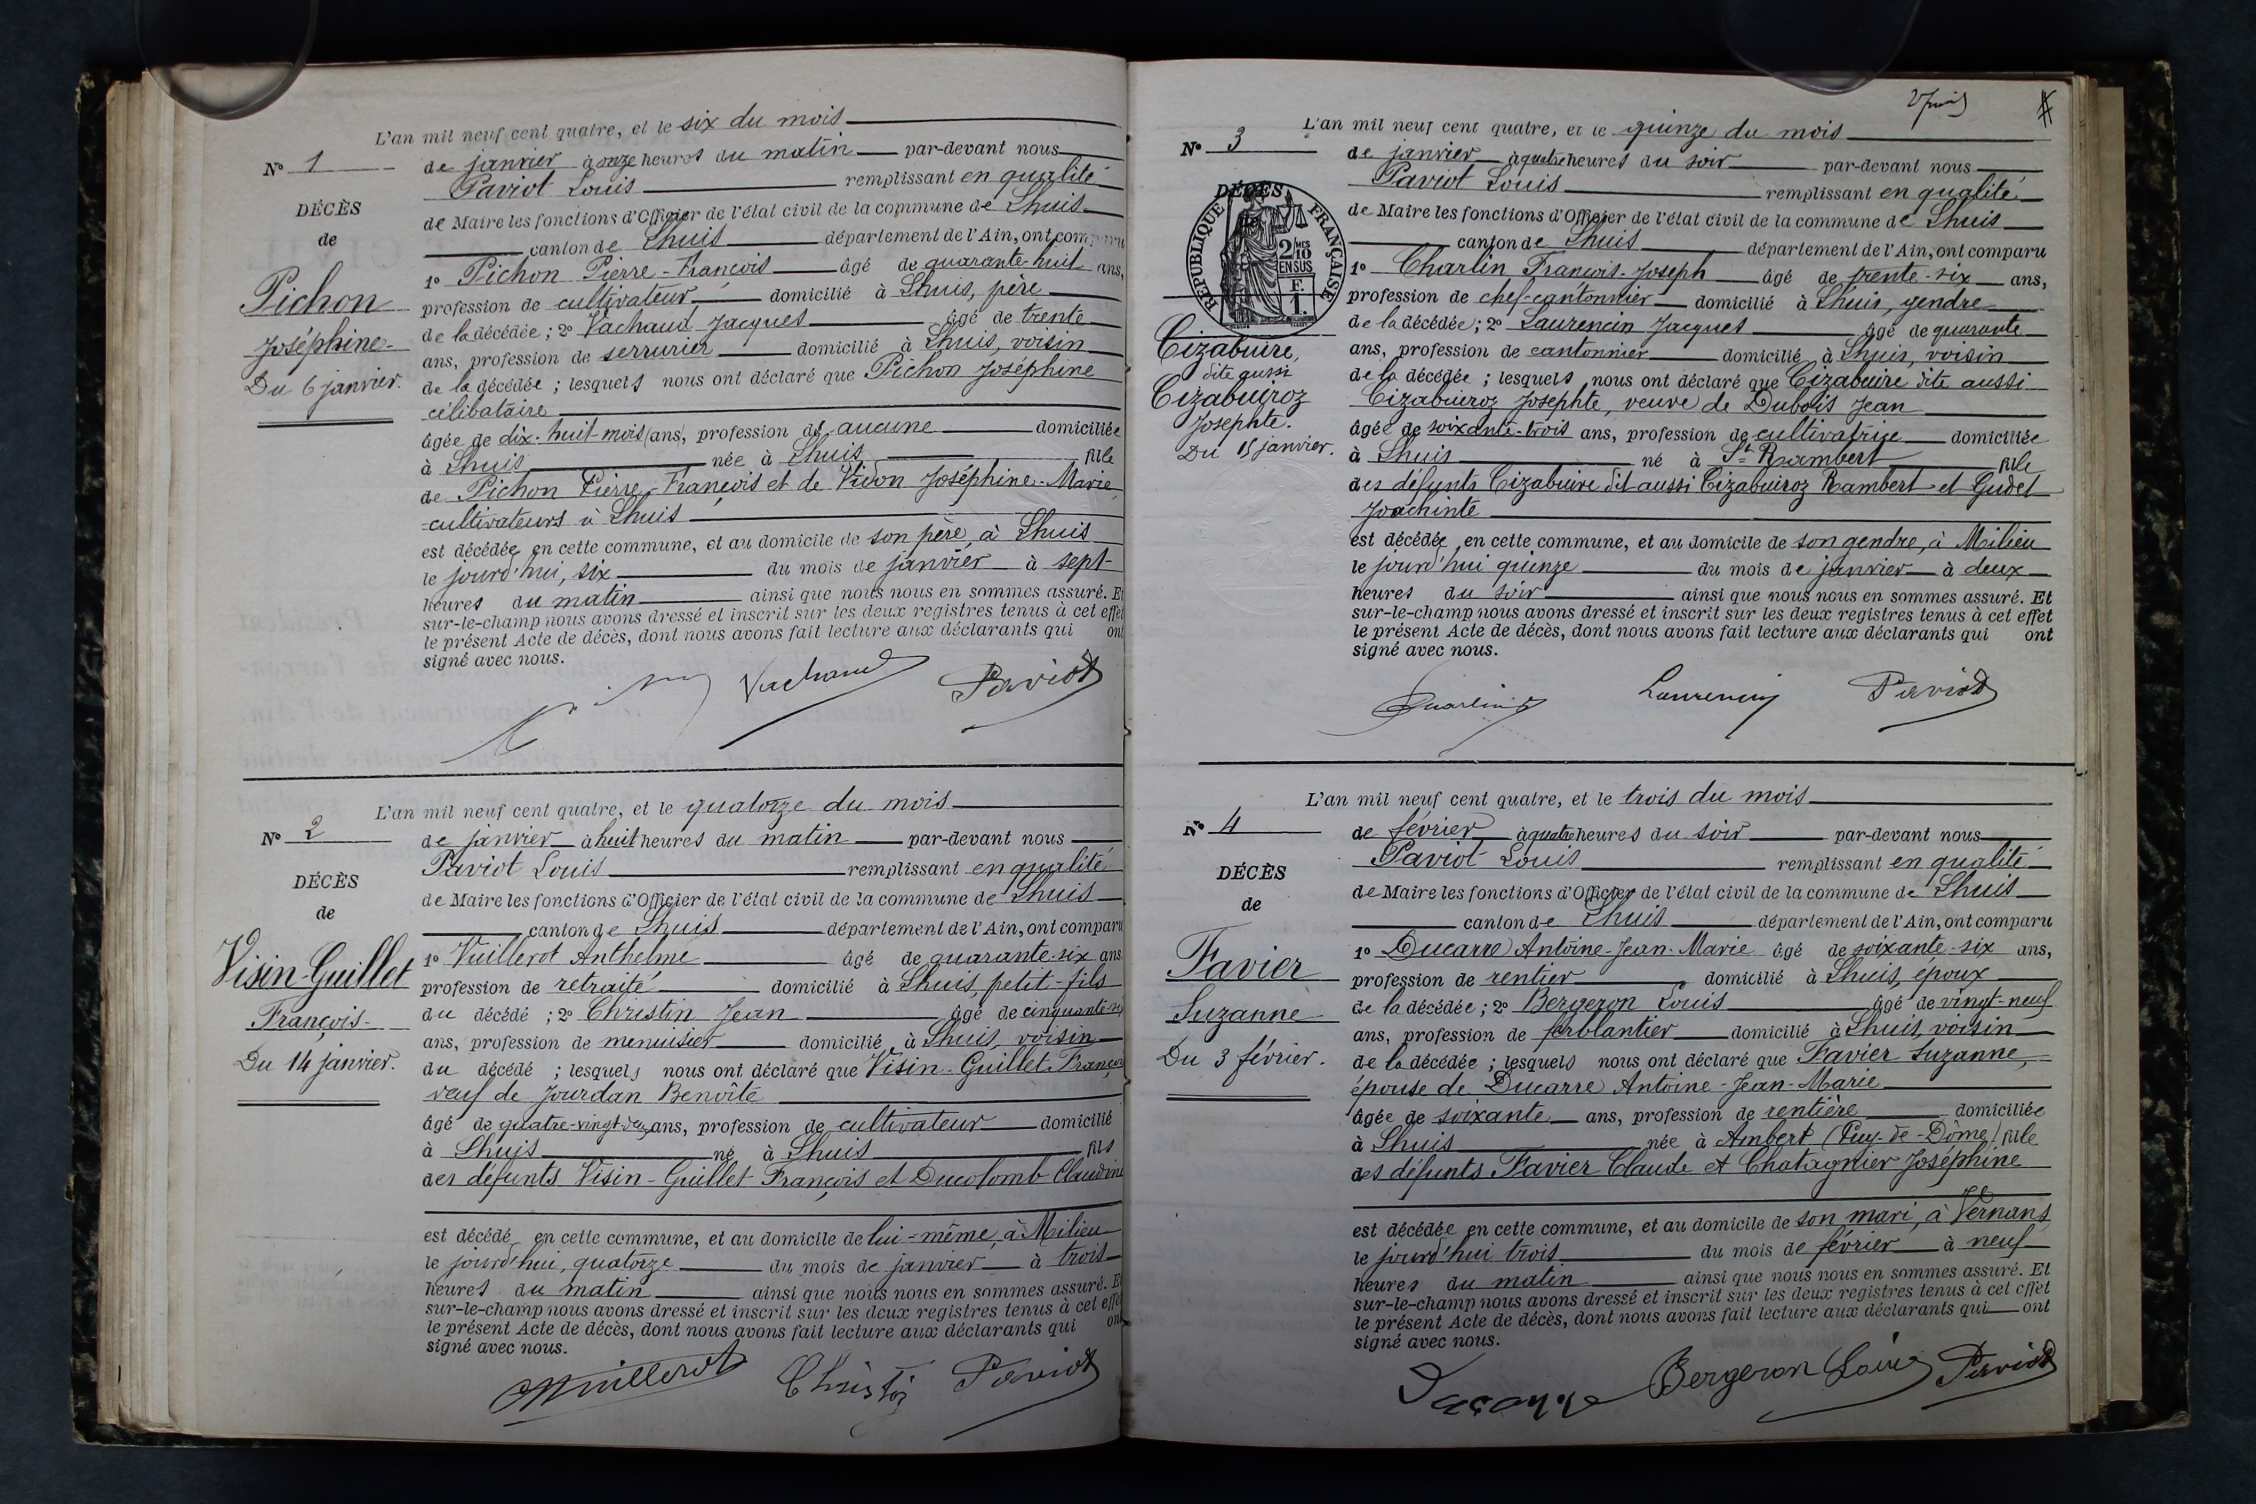 L'an mil neuf cent quatre, et le six du mois
N° 1
de janvier à onze heures du matin par-devant nous
Paviot Louis remplissant en qualité
DÉCÈS
de Maire les fonctions d'Officier de l'état civil de la commune de Lhuis
de
canton de Lhuis département de l'Ain, ont comparu
Pichon
1° Pichon Pierre-François âgé de quarante-huit ans,
profession de cultivateur domicilié à Lhuis, père
Joséphine
de la décédée ; 2° Vachaud Jacques âgé de trente
ans, profession de serrurier domicilié à Lhuis, voisin
Du 6 janvier.
de la décédée ; lesquels nous ont déclaré que Pichon Joséphine
célibataire
âgée de dix-huit mois (ans), profession de aucune domiciliée
à Lhuis née à Lhuis fille
de Pichon Pierre-François et de Vivon Joséphine-Marie
cultivateurs à Lhuis
est décédée en cette commune, et au domicile de son père, à Lhuis
le jourd'hui, six du mois de janvier à sept
heures du matin ainsi que nous nous en sommes assuré. Et
sur-le-champ nous avons dressé et inscrit sur les deux registres tenus à cet effet
le présent Acte de décès, dont nous avons fait lecture aux déclarants qui ont
signé avec nous.
Vachaud Paviot
L'an mil neuf cent quatre, et le quatorze du mois
N° 2
de janvier à huit heures du matin par-devant nous
Paviot Louis remplissant en qualité
DÉCÈS
de Maire les fonctions d'Officier de l'état civil de la commune de Lhuis
de
canton de Lhuis département de l'Ain, ont comparu
Visin-Guillet
1° Vuillerot Anthelme âgé de quarante-six ans
profession de retraité domicilié à Lhuis, petit-fils
François
du décédé ; 2° Christin Jean âgé de cinquante-six
ans, profession de menuisier domicilié à Lhuis, voisin
Du 14 janvier.
du décédé ; lesquels nous ont déclaré que Visin-Guillet François
veuf de Jourdan Benoîte
âgé de quatre-vingt-dix ans, profession de cultivateur domicilié
à Lhuis né à Lhuis fils
des défunts Visin-Guillet François et Ducolomb Claudine
est décédé en cette commune, et au domicile de lui-même, à Milieu
le jourd'hui, quatorze du mois de janvier à trois
heures du matin ainsi que nous nous en sommes assuré. Et
sur-le-champ nous avons dressé et inscrit sur les deux registres tenus à cet effet
le présent Acte de décès, dont nous avons fait lecture aux déclarants qui ont
signé avec nous.
Vuillerot Christin Paviot
L'an mil neuf cent quatre, et le quinze du mois
N° 3
de janvier à quatre heures du soir par-devant nous
Paviot Louis remplissant en qualité
DÉCÈS
RÉPUBLIQUE FRANÇAISE
2/10 EN SUS
F. 1.
de Maire les fonctions d'Officier de l'état civil de la commune de Lhuis
canton de Lhuis département de l'Ain, ont comparu
1° Charlin François-Joseph âgé de trente-six ans,
profession de chef-cantonnier domicilié à Lhuis, gendre
de la décédée ; 2° Laurencin Jacques âgé de quarante
Cizabuire,
ans, profession de cantonnier domicilié à Lhuis, voisin
dite aussi
de la décédée ; lesquels nous ont déclaré que Cizabuire dite aussi
Cizabuiroz
Cizabuiroz Josephte, veuve de Dubois Jean
Josephte.
âgée de soixante-trois ans, profession de cultivatrice domiciliée
Du 15 janvier.
à Lhuis né à St Rambert fille
des défunts Cizabuire dit aussi Cizabuiroz Rambert et Gudet
Joachinte
est décédée en cette commune, et au domicile de son gendre, à Milieu
le jourd'hui quinze du mois de janvier à deux
heures du soir ainsi que nous nous en sommes assuré. Et
sur-le-champ nous avons dressé et inscrit sur les deux registres tenus à cet effet
le présent Acte de décès, dont nous avons fait lecture aux déclarants qui ont
signé avec nous.
Charlin Laurencin Paviot
L'an mil neuf cent quatre, et le trois du mois
N° 4
de février à quatre heures du soir par-devant nous
Paviot Louis remplissant en qualité
DÉCÈS
de Maire les fonctions d'Officier de l'état civil de la commune de Lhuis
de
canton de Lhuis département de l'Ain, ont comparu
Favier
1° Ducarre Antoine-Jean-Marie âgé de soixante-six ans,
profession de rentier domicilié à Lhuis, époux
Suzanne
de la décédée ; 2° Bergeron Louis âgé de vingt-neuf
ans, profession de ferblantier domicilié à Lhuis, voisin
Du 3 février.
de la décédée ; lesquels nous ont déclaré que Favier Suzanne,
épouse de Ducarre Antoine-Jean-Marie
âgée de soixante ans, profession de rentière domiciliée
à Lhuis née à Ambert (Puy-de-Dôme) fille
des défunts Favier Claude et Chatagnier Joséphine
est décédée en cette commune, et au domicile de son mari, à Vernans
le jourd'hui trois du mois de février à neuf
heures du matin ainsi que nous nous en sommes assuré. Et
sur-le-champ nous avons dressé et inscrit sur les deux registres tenus à cet effet
le présent Acte de décès, dont nous avons fait lecture aux déclarants qui ont
signé avec nous.
Bergeron Louis Paviot